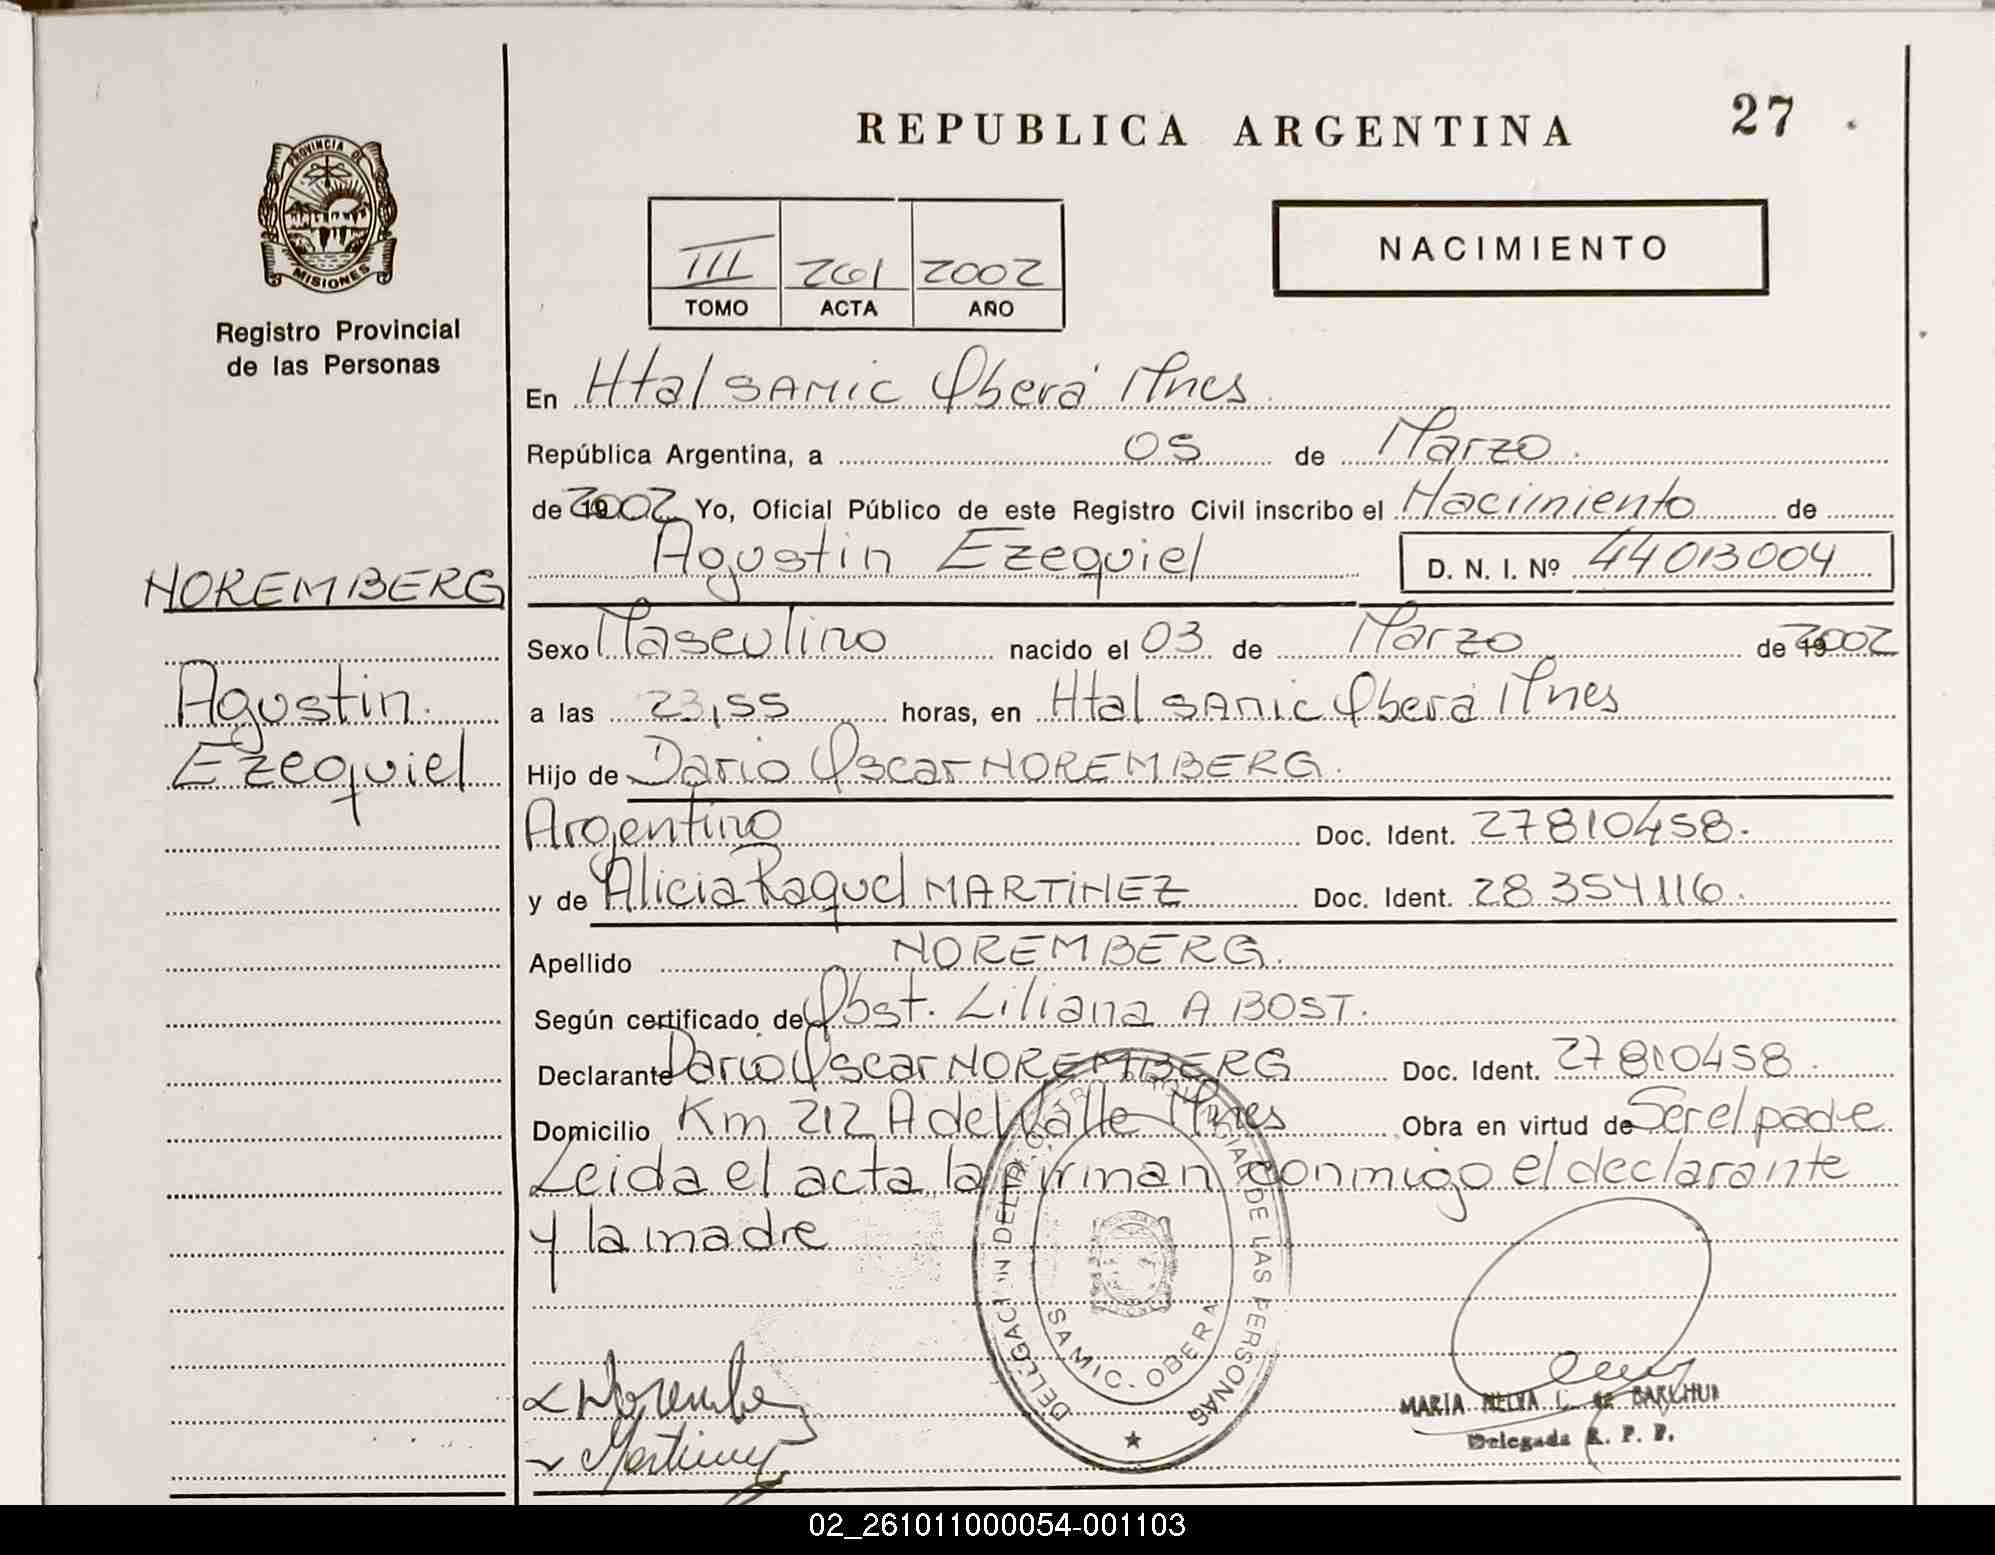 REPUBLICA ARGENTINA
27
PROVINCIA DE
MISIONES
Registro Provincial
de las Personas
III 261 2002
TOMO ACTA AÑO
NACIMIENTO
En Htal SAMIC Oberá Mnes
República Argentina, a 05 de Marzo.
de 2002 Yo, Oficial Público de este Registro Civil inscribo el Nacimiento de
Agustin Ezequiel
D. N. I. Nº 44013004
NOREMBERG
Agustin.
Ezequiel
Sexo Masculino nacido el 03 de Marzo de 2002
a las 23,55 horas, en Htal SAMIC Oberá Mnes
Hijo de Dario Oscar NOREMBERG.
Argentino Doc. Ident. 27810458.
y de Alicia Raquel MARTINEZ Doc. Ident. 28.354116.
Apellido NOREMBERG.
Según certificado de Obst. Liliana A BOST.
Declarante Dario Oscar NOREMBERG Doc. Ident. 27810458.
Domicilio Km 212 A del Valle Mnes Obra en virtud de Ser el padre
Leida el acta la firman conmigo el declarante
y la madre
DE LAS PERSONAS
SAMIC. OBERA
MARIA NELVA C. de
Delegada R. P. P.
02_261011000054-001103